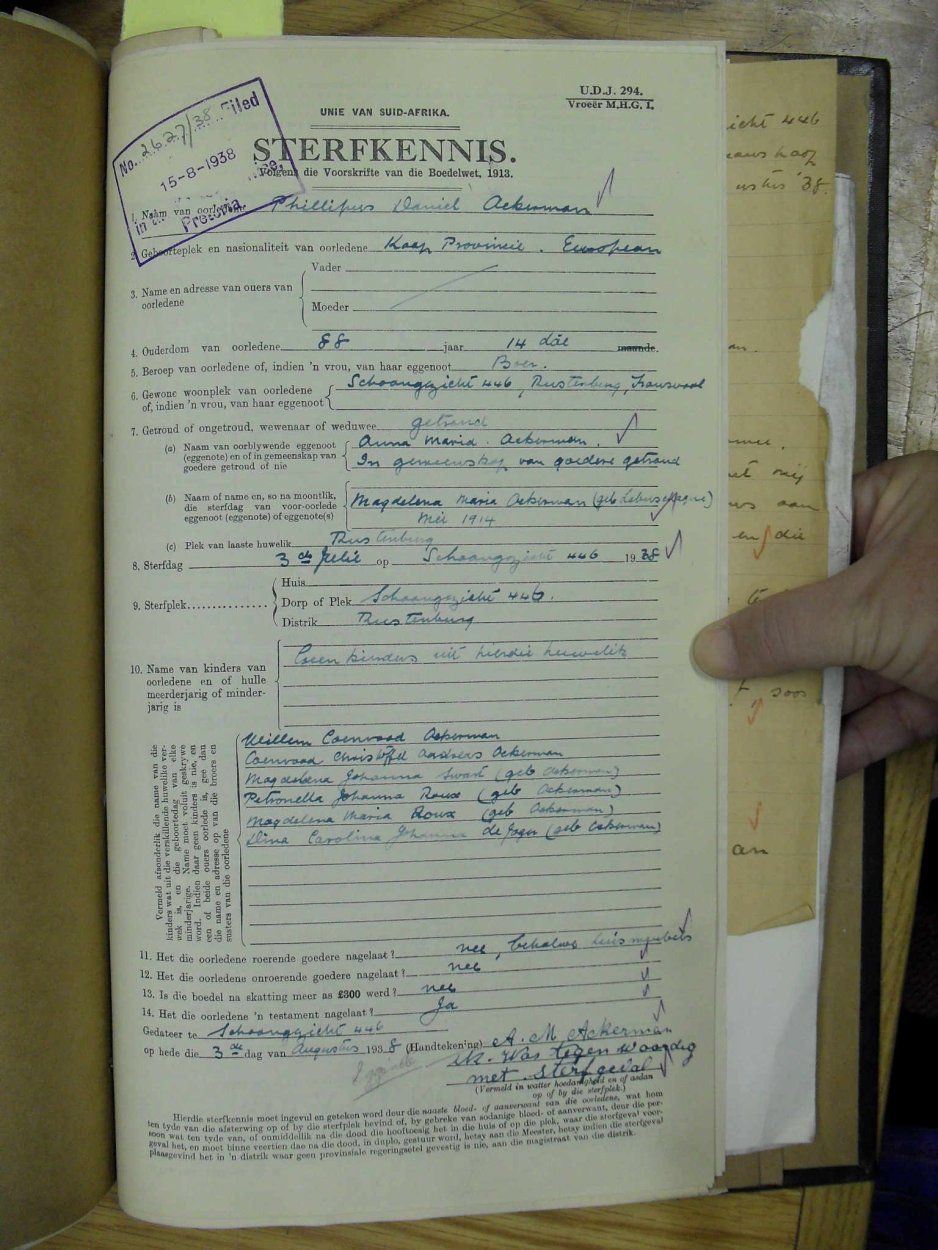 U.D.J. 294.
Vroeër M.H.G. I.
UNIE VAN SUID-AFRIKA.
STERFKENNIS.
Volgens die Voorskrifte van die Boedelwet, 1913.
No. 2627/38 Filed
15-8-1938
in the
Pretoria.
1. Naam van oorledene Phillipus Daniel Ackerman
2. Geboorteplek en nasionaliteit van oorledene Kaap Provincie. European
3. Name en adresse van ouers van oorledene
Vader
Moeder
4. Ouderdom van oorledene 88 jaar 14 dae maande.
5. Beroep van oorledene of, indien 'n vrou, van haar eggenoot Boer.
6. Gewone woonplek van oorledene of, indien 'n vrou, van haar eggenoot Schoongezicht 446, Rustenburg, Transvaal
7. Getroud of ongetroud, wewenaar of weduwee getroud
(a) Naam van oorblywende eggenoot (eggenote) en of in gemeenskap van goedere getroud of nie
Anna Maria. Ackerman.
In gemeenskap van goedere getroud
(b) Naam of name en, so na moontlik, die sterfdag van voor-oorlede eggenoot (eggenote) of eggenote(s)
Magdelena Maria Ackerman (geb
Mei 1914
(c) Plek van laaste huwelik Rustenburg
8. Sterfdag 3de Julie op Schoongezicht 446 1938
9. Sterfplek
Huis
Dorp of Plek Schoongezicht 446.
Distrik Rustenburg
10. Name van kinders van oorledene en of hulle meerderjarig of minderjarig is
Geen kinders uit hierdie huwelik
Vermeld afsonderlik die name van die kinders wat uit die verskillende huwelike verwek is, en die geboortedag van elke minderjarige. Name moet voluit geskrywe word. Indien daar geen kinders is nie, en een of beide ouers oorlede is, gee dan die name en adresse op van die broers en susters van die oorledene
Willem Coenraad Ackerman
Coenraad Christoffel Andreas Ackerman
Magdelena Johanna Swart (geb Ackerman)
Petronella Johanna Roux (geb Ackerman)
Magdelena Maria Roux (geb Ackerman)
Dina Carolina Johanna de Jager (geb Ackerman)
11. Het die oorledene roerende goedere nagelaat? nee, behalwe huismeubels
12. Het die oorledene onroerende goedere nagelaat? nee
13. Is die boedel na skatting meer as £300 werd? nee
14. Het die oorledene 'n testament nagelaat? Ja
Gedateer te Schoongezicht 446
op hede die 3de dag van Augustus 1938 (Handtekening) A. M. Ackerman
ek. Was tegenwoordig
met Sterfgeval
(Vermeld in watter hoedanigheid en of aldan op of by die sterfplek.)
Hierdie sterfkennis moet ingevul en geteken word deur die naaste bloed- of aanverwant van die oorledene, wat hom
ten tyde van die afsterwing op of by die sterfplek bevind of, by gebreke van sodanige bloed- of aanverwant, deur die per-
soon wat ten tyde van, of onmiddellik na die dood die hooftoesig het in die huis of op die plek, waar die sterfgeval voor-
geval het, en moet binne veertien dae na die dood, in duplo, gestuur word, hetsy aan die Meester, hetsy indien die sterfgeval
plaasgevind het in 'n distrik waar geen provinsiale regeringsetel gevestig is nie, aan die magistraat van die distrik.